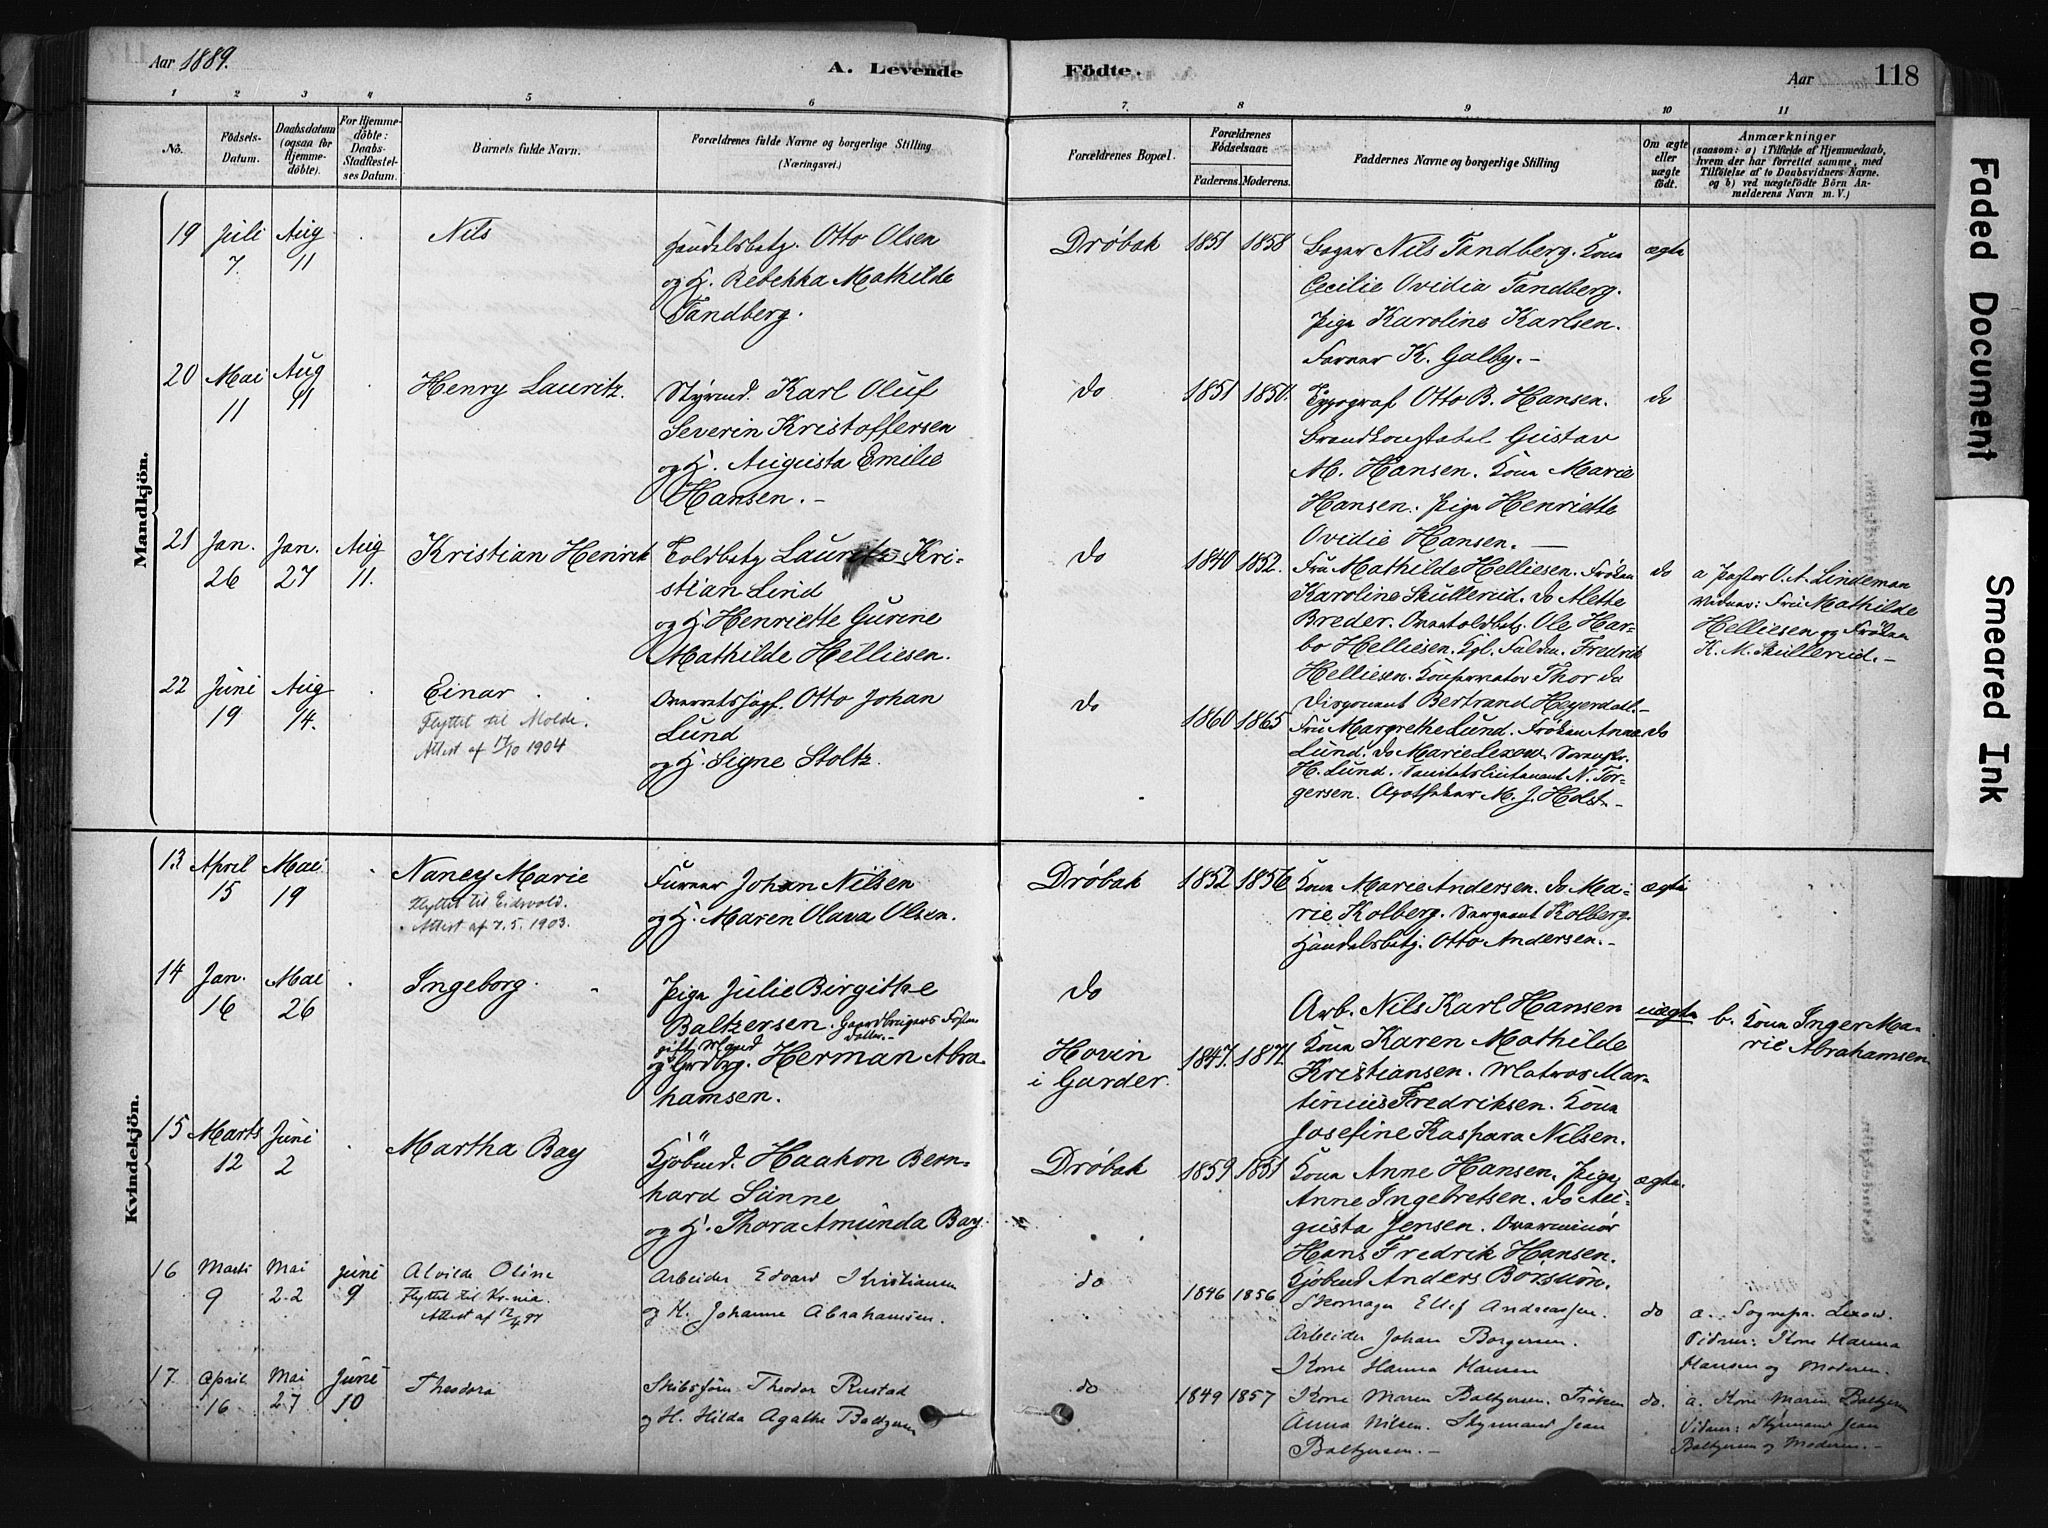 Aar 1889.
A. Levende
Födte.
Aar
118
1 2 3 4 5 6 7. 8 9 10 11
No.
Födsels-
Datum.
Daabsdatum
(ogsaa for
Hjemme-
döbte).
For Hjemme-
döbte:
Daabs-
Stadfæstel-
ses Datum.
Barnets fulde Navn.
Forældrenes fulde Navne og borgerlige Stilling
(Næringsvei.)
Forældrenes Bopæl.
Forældrenes
Födselsaar.
Faderens.
Moderens.
Faddernes Navne og borgerlige Stilling
Om ægte
eller
uægte
födt.
Anmærkninger
(saasom: a) i Tilfælde af Hjemmedaab,
hvem der har forrettet samme, med
Tilföielse af to Daabsvidners Navne.
og b) ved uægtefödte Börn An-
melderens Navn m. V.)
Mandkjön.
19
Juli
7.
Aug
11
Nils
Handelsbetj. Otto Olsen
og H. Rebekka Mathilde
Tandberg.
Drøbak
1851
1858
Bager Nils Tandberg. Kona
Cecilie Ovidia Tandberg.
Pige Karoline Karlsen.
Farver K. Galby. –
ægte
20
Mai
11
Aug
11
Henry Lauritz.
Styrmd. Karl Oluf
Severin Kristoffersen
og H. Augusta Emilie
Hansen. –
do
1851
1850.
Typograf Otto B. Hansen.
Brandkonstabel Gustav
M. Hansen. Kona Marie
Hansen. Pige Henriette
Ovidie Hansen. –
do
21
Jan.
26
Jan.
27
Aug
11.
Kristian Henrik
Toldbetj Lauritz Kri-
stian Lind
og H. Henriette Gurine
Mathilde Helliesen.
do
1840
1852.
Fru Mathilde Helliesen. Frøken
Karoline Skullerud. do Alette
Breder. Overtoldbetj. Ole Har-
bo Helliesen. Kgl. Fuldm. Fredrik
Helliesen. Konservator Thor do
Disponent Bertrand Heyerdall. –
do
a Pastor O. A. Lindeman
Vidner: Fru Mathilde
Helliesen og Frøken
K. M. Skullerud. –
22
Juni
19
Aug
14.
Einar
Flyttet til Molde.
Attest af 17/10 1904
Overretssagf. Otto Johan
Lund
og H. Signe Stoltz.
do
1860
1865
Fru Margrethe Lund. Frøken Anna
Lund. do Marie Lexow.
H. Lund. Sanitetslieutenant N. Tor-
gersen. Apotheker M. J. Holst –
do
Kvindekjön.
13
April
15
Mai
19
Nancy Marie
Flyttet til Eidsvold.
Attest af 7.5.1903.
Furner Johan Nilsen
og H. Maren Olava Olsen.
Drøbak
1852
1856
Kona Marie Andersen. do Ma-
rie Kolberg. Sergeant Kolberg.
Handelsbetj. Otto Andersen. –
ægte
14
Jan.
16
Mai
26
Ingeborg.
Pige Julie Birgitte
Baltzersen. Gaardbrugers
datter. –
og Grdbrg. Herman Abra-
hamsen.
do
Hovin
i Garder.
1847.
1871
Arb. Nils Karl Hansen
Kona Karen Mathilde
Kristiansen. Matros Mar-
tinius Fredriksen. Kona
Josefine Kaspara Nilsen.
uægte
b. Kona Inger Ma-
rie Abrahamsen
15
Marts
12
Juni
2
Martha Bay
Kjöbmd. Haakon Bern-
hard Sünne
og H. Thora Amunda Bay.
Drøbak
1859
1851
Kona Anne Hansen. Pige
Anne Ingebretsen. do Au-
gusta Jensen. Overminör
Hans Fredrik Hansen.
Kjöbmd Anders Börsum.
ægte.
16
Marts
9
Mai
22
Juni
9
Alvilde Oline
Flyttet til Kr-nia.
Attest af 12/4 97
Arbeider Edvard Kristiansen
og H. Johanne Abrahamsen.
do
1846
1856
Skomager Ellef Andreassen.
Arbeider Johan Borgersen.
Kone Hanna Hansen
do
a. Sognepr. Lexow.
Vidner: Kone Hanna
Hansen og Moderen.
17
April
16
Mai
27
Juni
10
Theodora
Skibsförer Theodor Rustad
og H. Hilda Agathe Baltzersen
do
1849
1857
Kone Maren Baltzersen. Frøken
Anna Nilsen. Styrmand Jean
Baltzersen. –
do.
a. Kone Maren Baltzersen
Vidner: Styrmand Jean
Baltzersen og Moderen. –
Faded Document
Smeared Ink